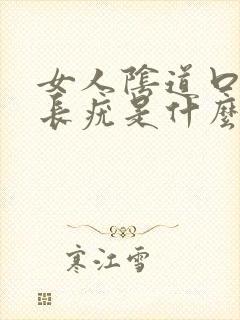 女人陰道口
長疣是什麼
寒江雪